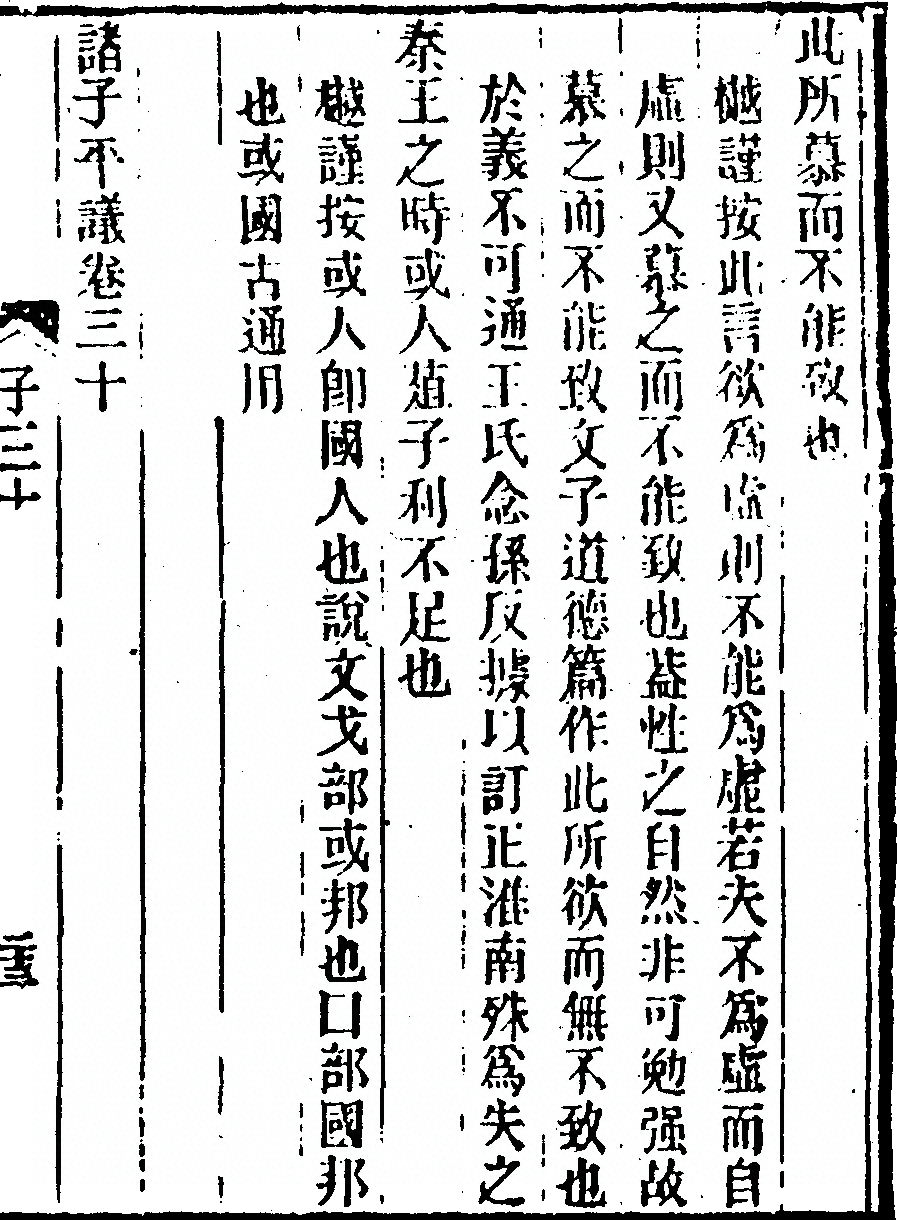 此所慕而不能致也
樾謹按此言欲爲虛則不能爲虛若夫不爲虛而自
虛則又慕之而不能致也蓋性之自然非可勉强故
慕之而不能致文子道德篇作此所欲而無不致也
於義不可通王氏念孫反據以訂正淮南殊爲失之
秦王之時或人葅子利不足也
樾謹按或人卽國人也說文戈部或邦也囗部國邦
也或國古通用
諸子平議卷三十
子三十